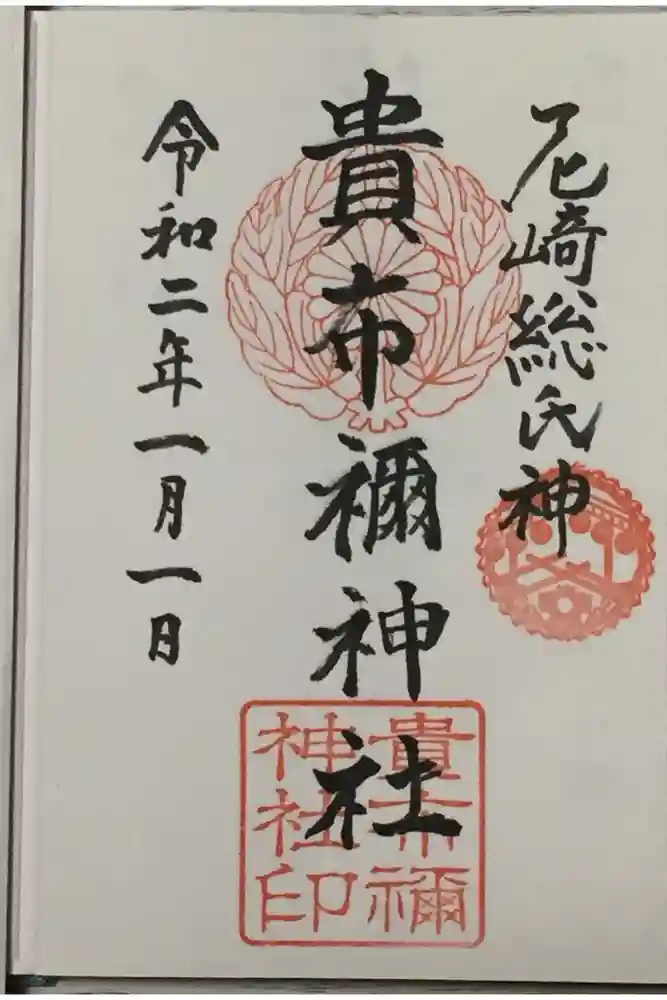 尼崎総氏神
貴布禰神社
令和二年一月一日
貴布禰
神社印